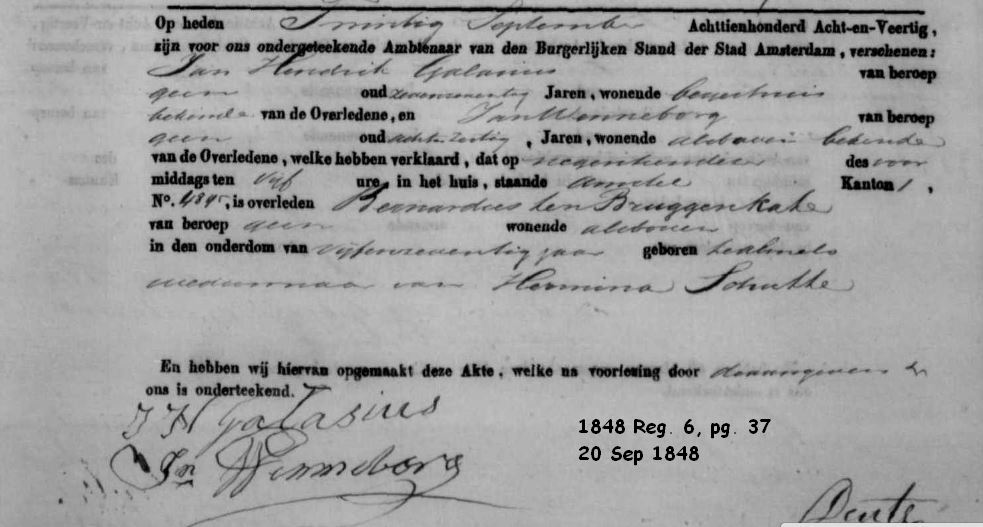 Op heden Twintig September Achttienhonderd Acht-en-Veertig,
zijn voor ons ondergeteekende Ambtenaar van den Burgerlijken Stand der Stad Amsterdam, verschenen:
Jan Hendrik Galasius van beroep
geen oud zevenzeventig Jaren, wonende besjeshuis
bekende van de Overledene, en Jan Wenneborg van beroep
geen oud achtenzestig, Jaren, wonende alsboven bekende
van de Overledene, welke hebben verklaard, dat op negentienden des voor
middags ten vijf ure, in het huis, staande Amstel Kanton 1,
No. is overleden Bernardus ten Bruggenkate
van beroep geen wonende alsboven
in den ouderdom van vijfenzeventig jaar geboren
weduwnaar van Hermina Schutte
En hebben wij hiervan opgemaakt deze Akte, welke na voorlezing door de aangevers &
ons is onderteekend.
J H Galasius
Jn Wenneborg
1848 Reg. 6, pg. 37
20 Sep 1848